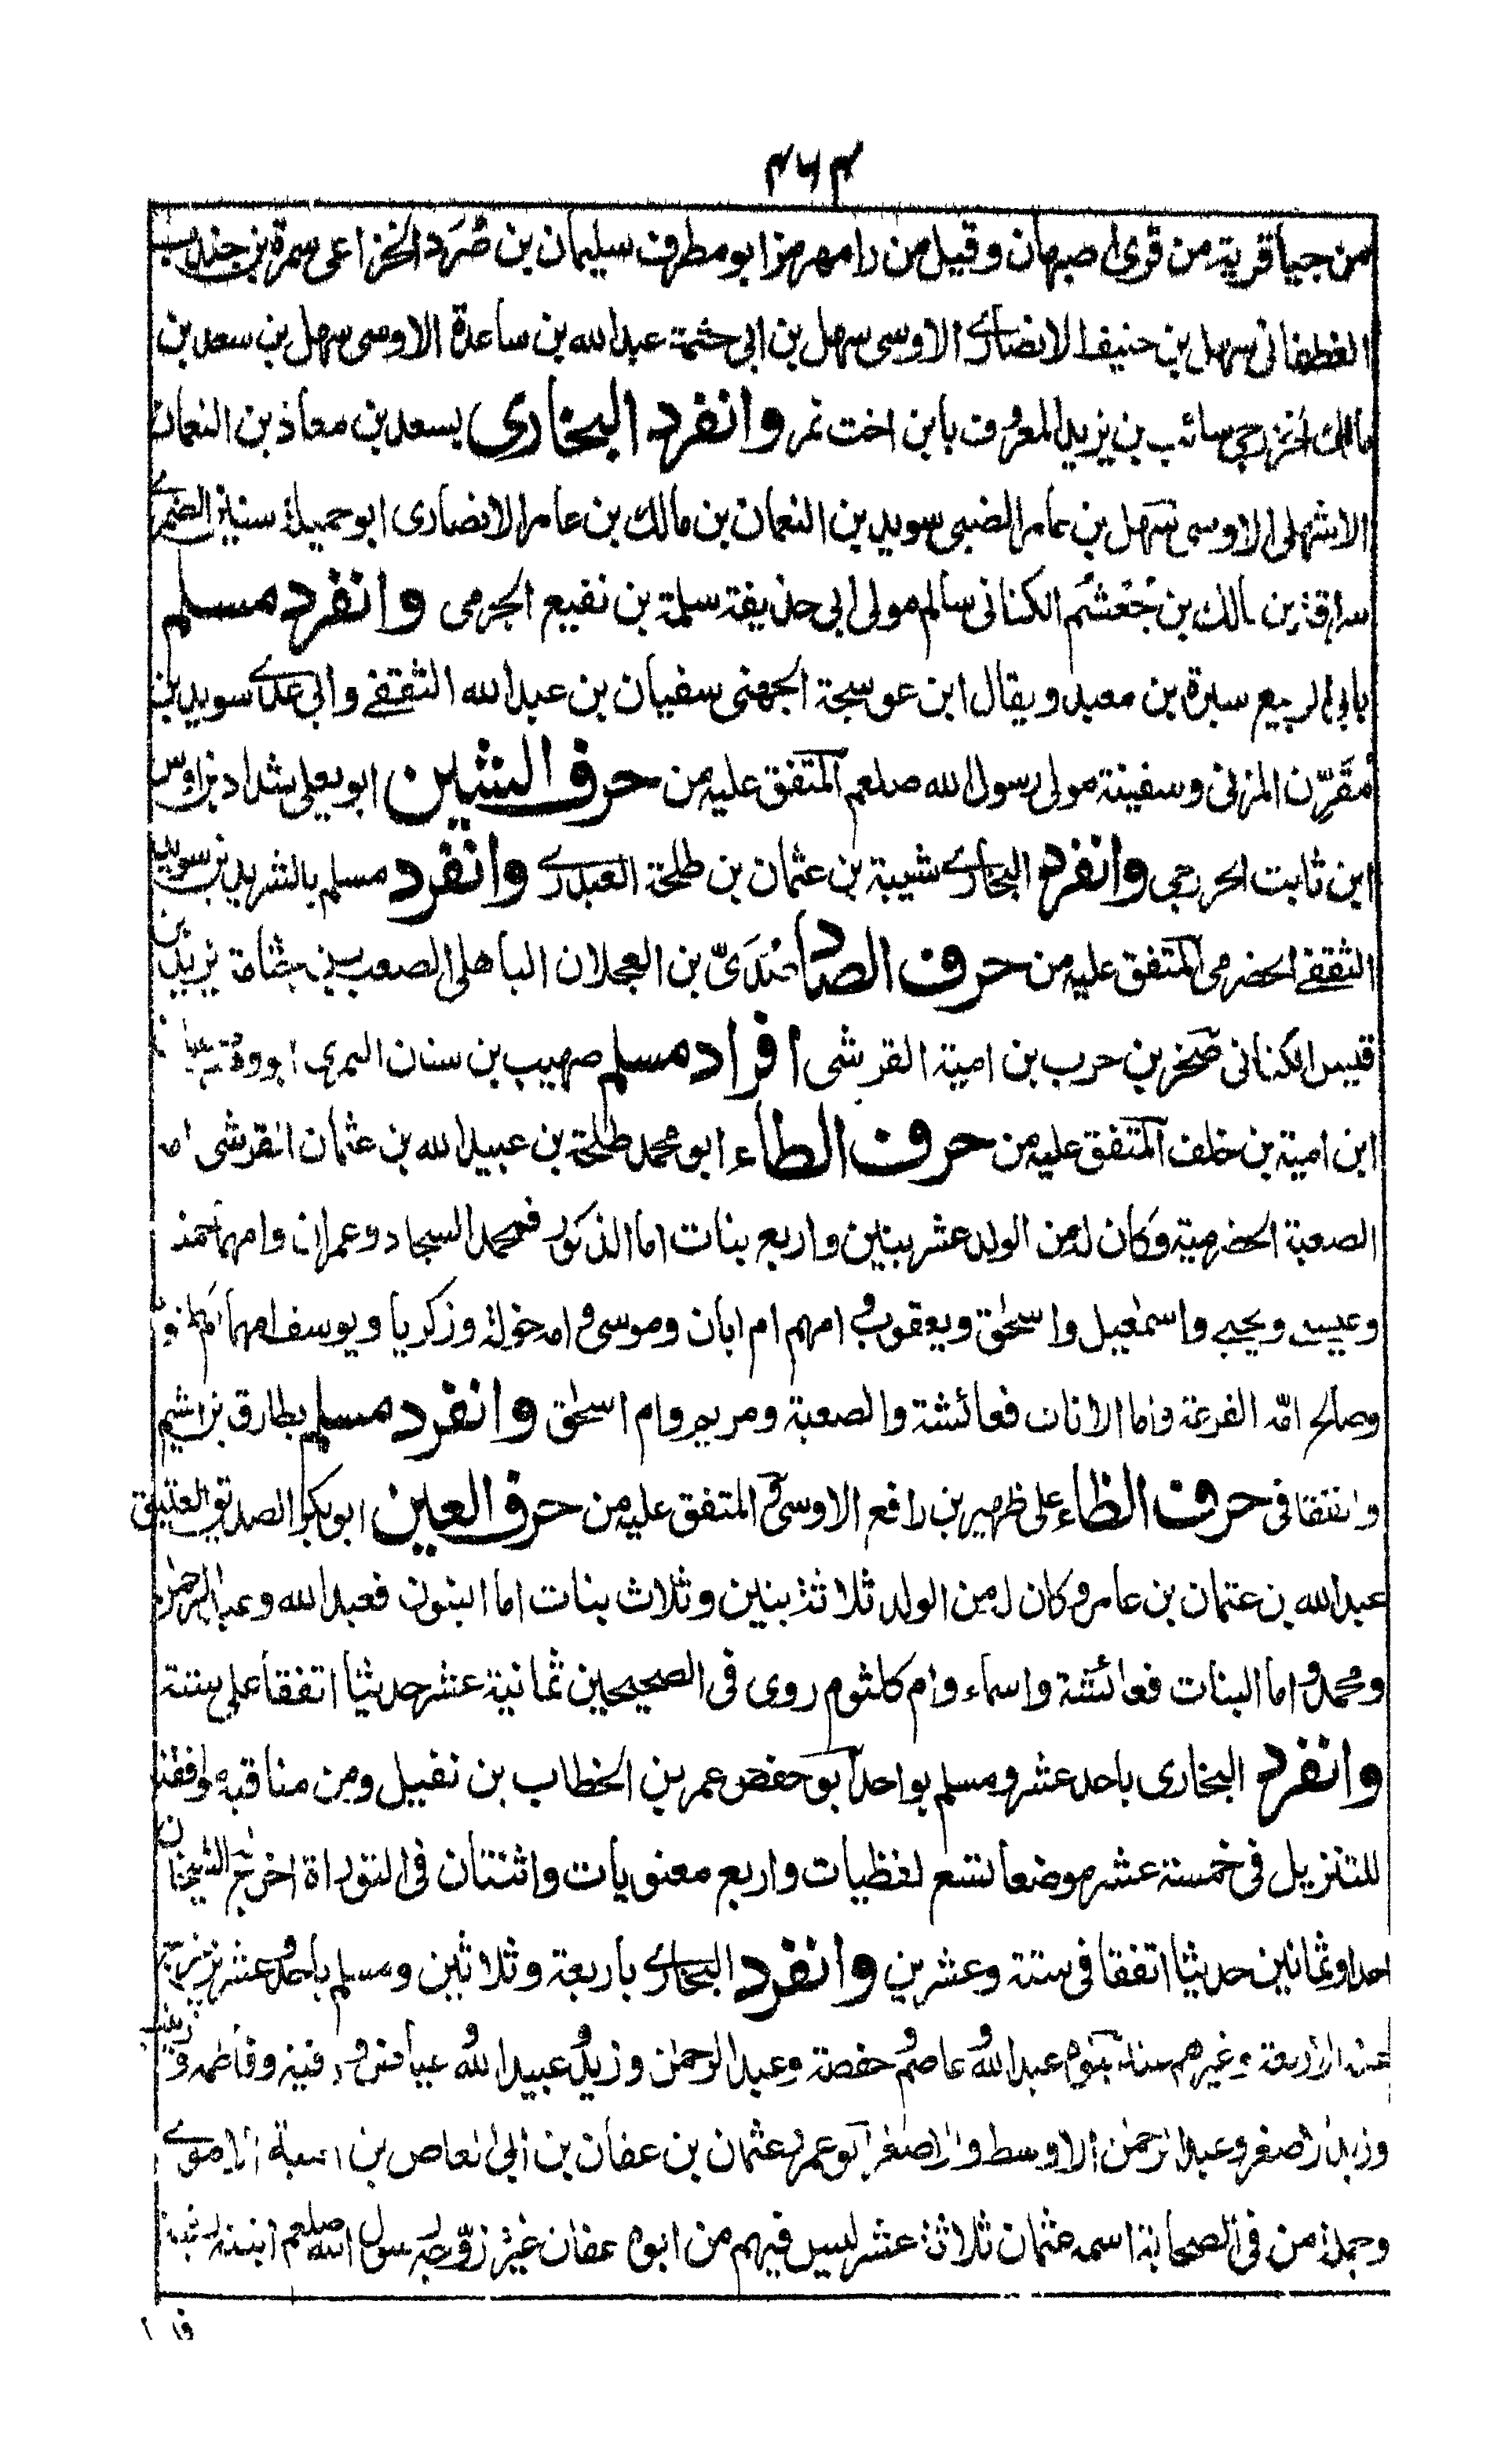 ۴۶۴
من جيا قرية من قرى اصبهان وقيل من رامهرمز ابو مطرف سليمان بن صُرَد الخزاعى سمرة بن جندب
الغطفانى سهل بن حنيف الانصارى الاوسى سهل بن ابى حثمة عبد الله بن ساعدة الاوسى سهل بن سعد بن
مالك الخزرجى سائب بن يزيد المعروف بابن اخت نمر وانفرد البخارى بسعد بن معاذ بن النعمان
الاشهلى الاوسى سهل بن عامر الضبى سويد بن النعمان بن مالك بن عامر الانصارى ابو جميلة سنين الضمرى
سراقة بن مالك بن جُعْشُم الكنانى سالم مولى ابى حذيفة سلمة بن نفيع الجرمى وانفرد مسلم
بابى الربيع سبرة بن معبد ويقال ابن عوسجة الجهنى سفيان بن عبد الله الثقفى وابى عدى سويد بن
مُقَرِّن المزنى وسفينة مولى رسول الله صلعم المتفق عليه من حرف الشين ابو يعلى شداد بن اوس
ابن ثابت الخزرجى وانفرد البخارى شيبة بن عثمان بن طلحة العبدرى وانفرد مسلم بالشريد بن سويد
الثقفى الحضرمى المتفق عليه من حرف الصاد صُدَىّ بن العجلان الباهلى الصعب بن جثامة يزيد بن
قيس الكنانى صخر بن حرب بن امية القرشى افراد مسلم صهيب بن سنان النمرى ابو وهب
ابن امية بن خلف المتفق عليه من حرف الطاء ابو محمد طلحة بن عبيد الله بن عثمان القرشى امه
الصعبة الحضرمية وكان له من الولد عشر بنين واربع بنات اما الذكور فمحمد السجاد وعمران وامهما حمنة
وعيسى ويحيى واسمعيل واسحق ويعقوب و امهم ام ابان وموسى و امه خولة وزكريا ويوسف امهما ام كلثوم
وصالح امه الفرعة واما الاناث فعائشة والصعبة ومريم وام اسحق وانفرد مسلم بطارق بن اشيم
واتفقا فى حرف الظاء على ظهير بن رافع الاوسى و المتفق عليه من حرف العين ابو بكر الصديق العتيق
عبد الله بن عثمان بن عامر و كان له من الولد ثلاثة بنين وثلاث بنات اما البنون فعبد الله وعبد الرحمن
ومحمد و اما البنات فعائشة واسماء وام كلثوم روى فى الصحيحين ثمانية عشر حديثا اتفقا على ستة
وانفرد البخارى باحد عشر ومسلم بواحد ابو حفص عمر بن الخطاب بن نفيل ومن مناقبه موافقته
للتنزيل فى خمسة عشر موضعا تسع لفظيات واربع معنويات واثنتان فى التوراة اخرج الشيخان
احدا وثمانين حديثا اتفقا فى ستة وعشرين وانفرد البخارى باربعة وثلاثين ومسلم باحد وعشرين
عند الاربعة وغيرهم ستة بنوه عبد الله و عاصم و حفصة وعبد الرحمن وزيد و عبيد الله و عياض و رقية وفاطمة و زينب
وزيد الاصغر وعبد الرحمن الاوسط والاصغر ابو عمرو عثمان بن عفان بن ابى العاص بن امية الاموى
وجملة من فى الصحابة اسمه عثمان ثلاثة عشر ليس فيهم من ابوه عفان غيره زوّجه رسول الله صلعم ابنته رقية